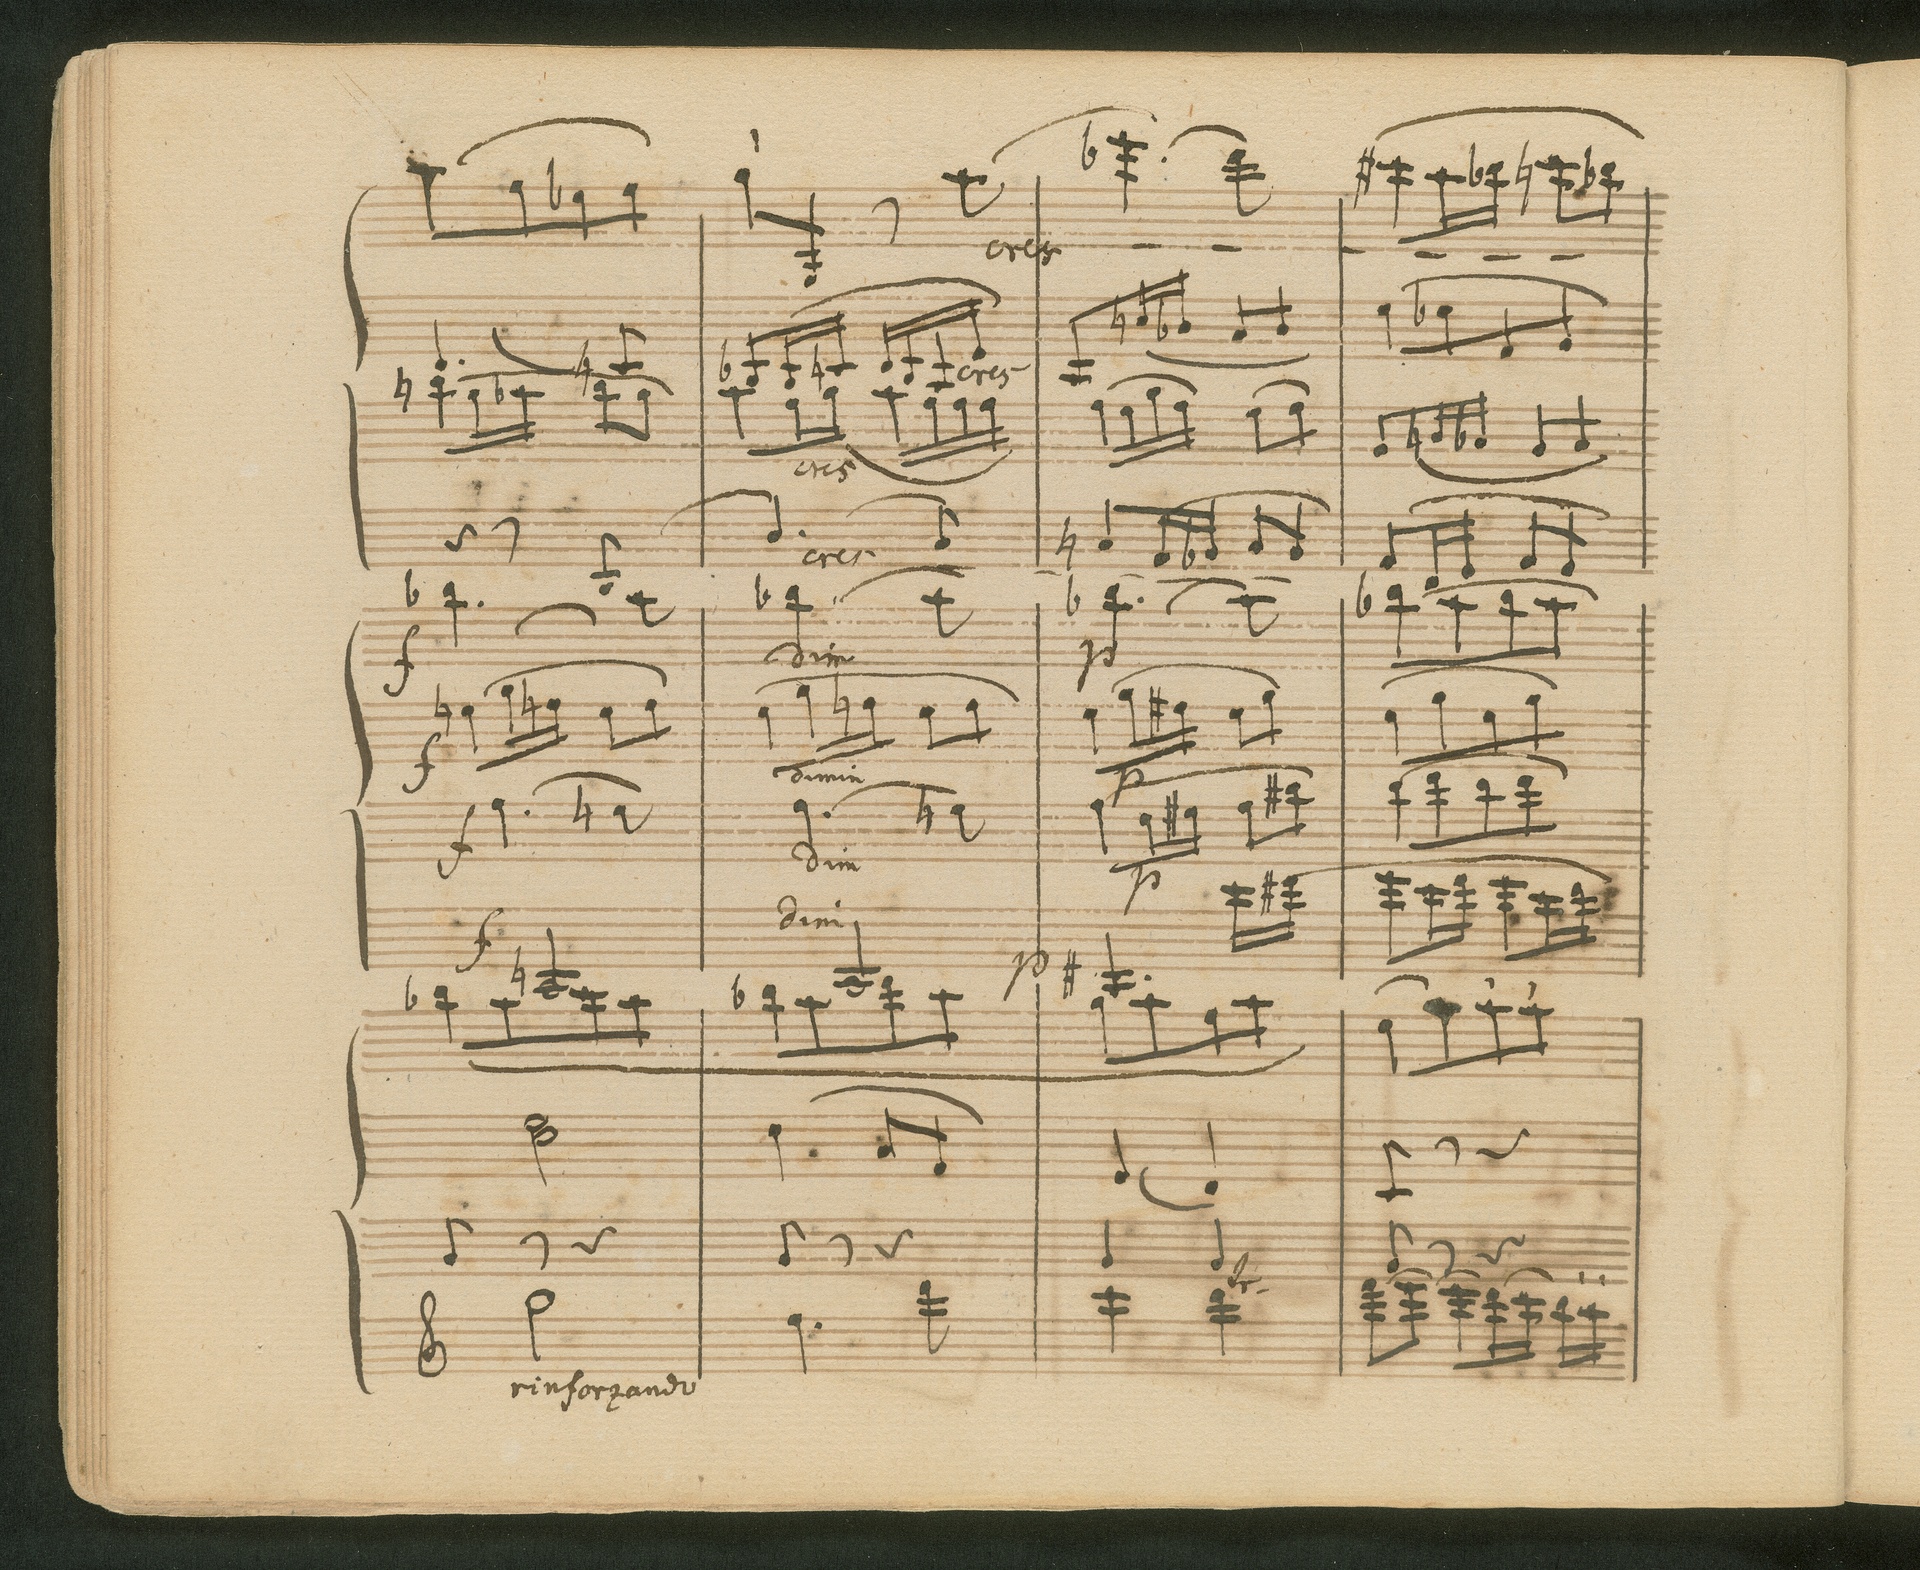 cres
cres
cres
cres
f
dim
p
f
dimin
p
f
dim
p
f
dim
p
tr
rinforzando